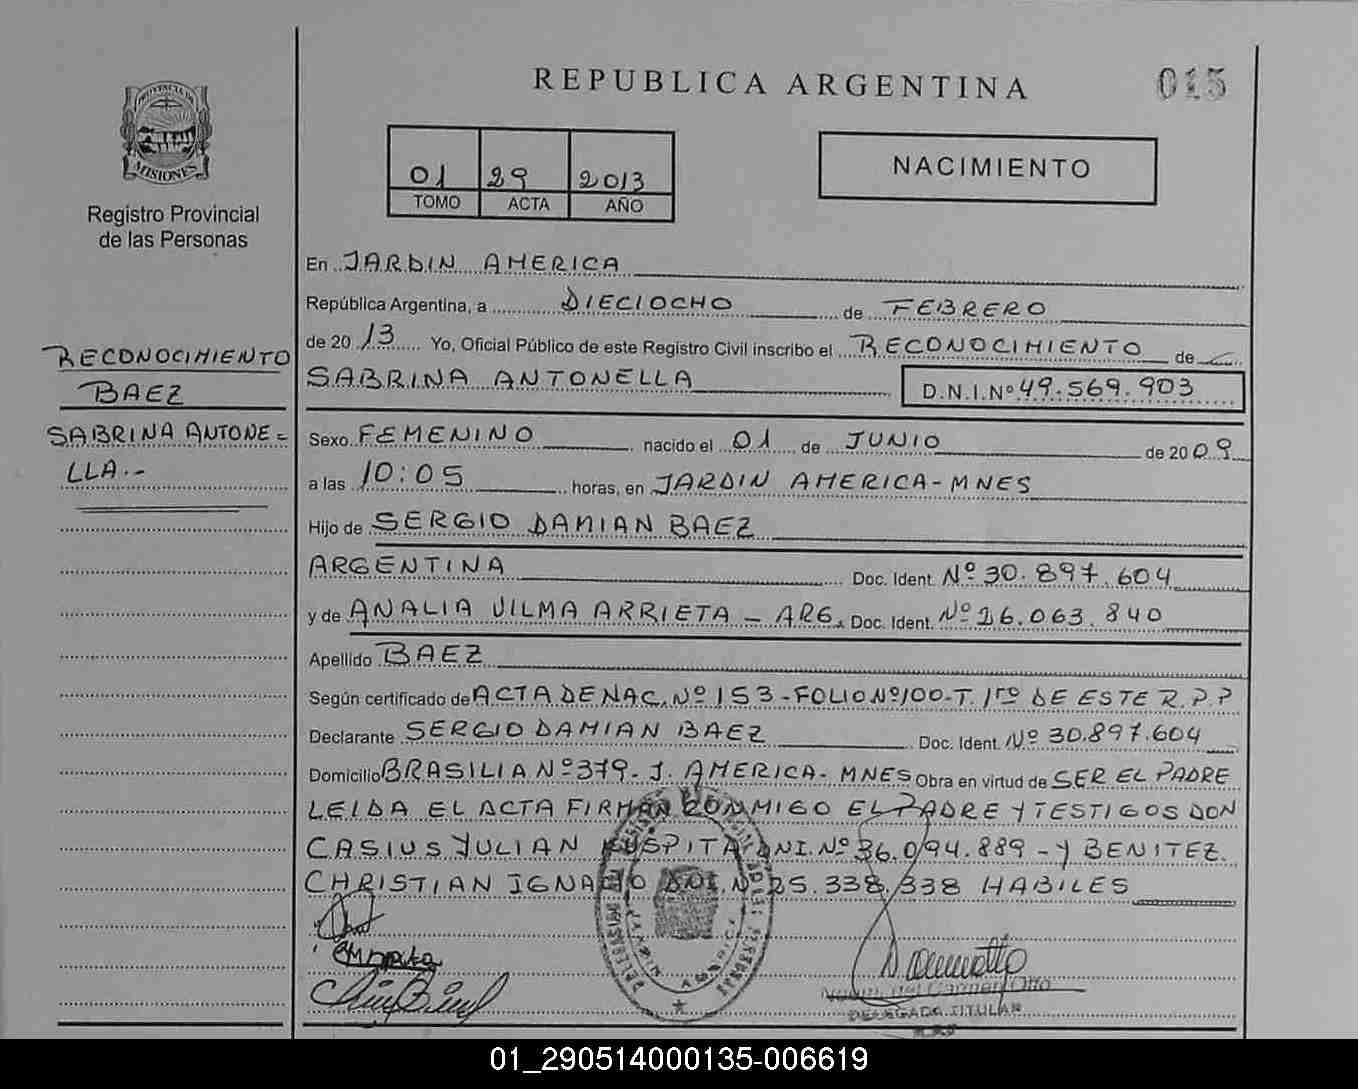 REPUBLICA ARGENTINA
015
PROVINCIA DE
MISIONES
Registro Provincial
de las Personas
01 29 2013
TOMO ACTA AÑO
NACIMIENTO
RECONOCIMIENTO
BAEZ
SABRINA ANTONE=
LLA.-
En JARDIN AMERICA
República Argentina, a DIECIOCHO de FEBRERO
de 20 13 Yo, Oficial Público de este Registro Civil inscribo el RECONOCIMIENTO de
SABRINA ANTONELLA D.N.I.Nº 49.569.903
Sexo FEMENINO nacido el 01 de JUNIO de 20 09
a las 10:05 horas, en JARDIN AMERICA-MNES
Hijo de SERGIO DAMIAN BAEZ
ARGENTINA Doc. Ident. Nº 30.897.604
y de ANALIA VILMA ARRIETA - ARG. Doc. Ident. Nº 26.063.840
Apellido BAEZ
Según certificado de ACTA DE NAC. Nº 153-FOLIO Nº 100-T. 1ro DE ESTE R.P.P
Declarante SERGIO DAMIAN BAEZ Doc. Ident. Nº 30.897.604
Domicilio BRASILIA Nº 379- J. AMERICA- MNES Obra en virtud de SER EL PADRE
LEIDA EL ACTA FIRMAN CONMIGO EL PADRE Y TESTIGOS DON
CASIUS JULIAN KUSPITA DNI. Nº 36.094.889 - Y BENITEZ
CHRISTIAN IGNACIO DNI. Nº 25.338.338 HABILES
JARDIN AMERICA
DELEGADA TITULAR
01_290514000135-006619